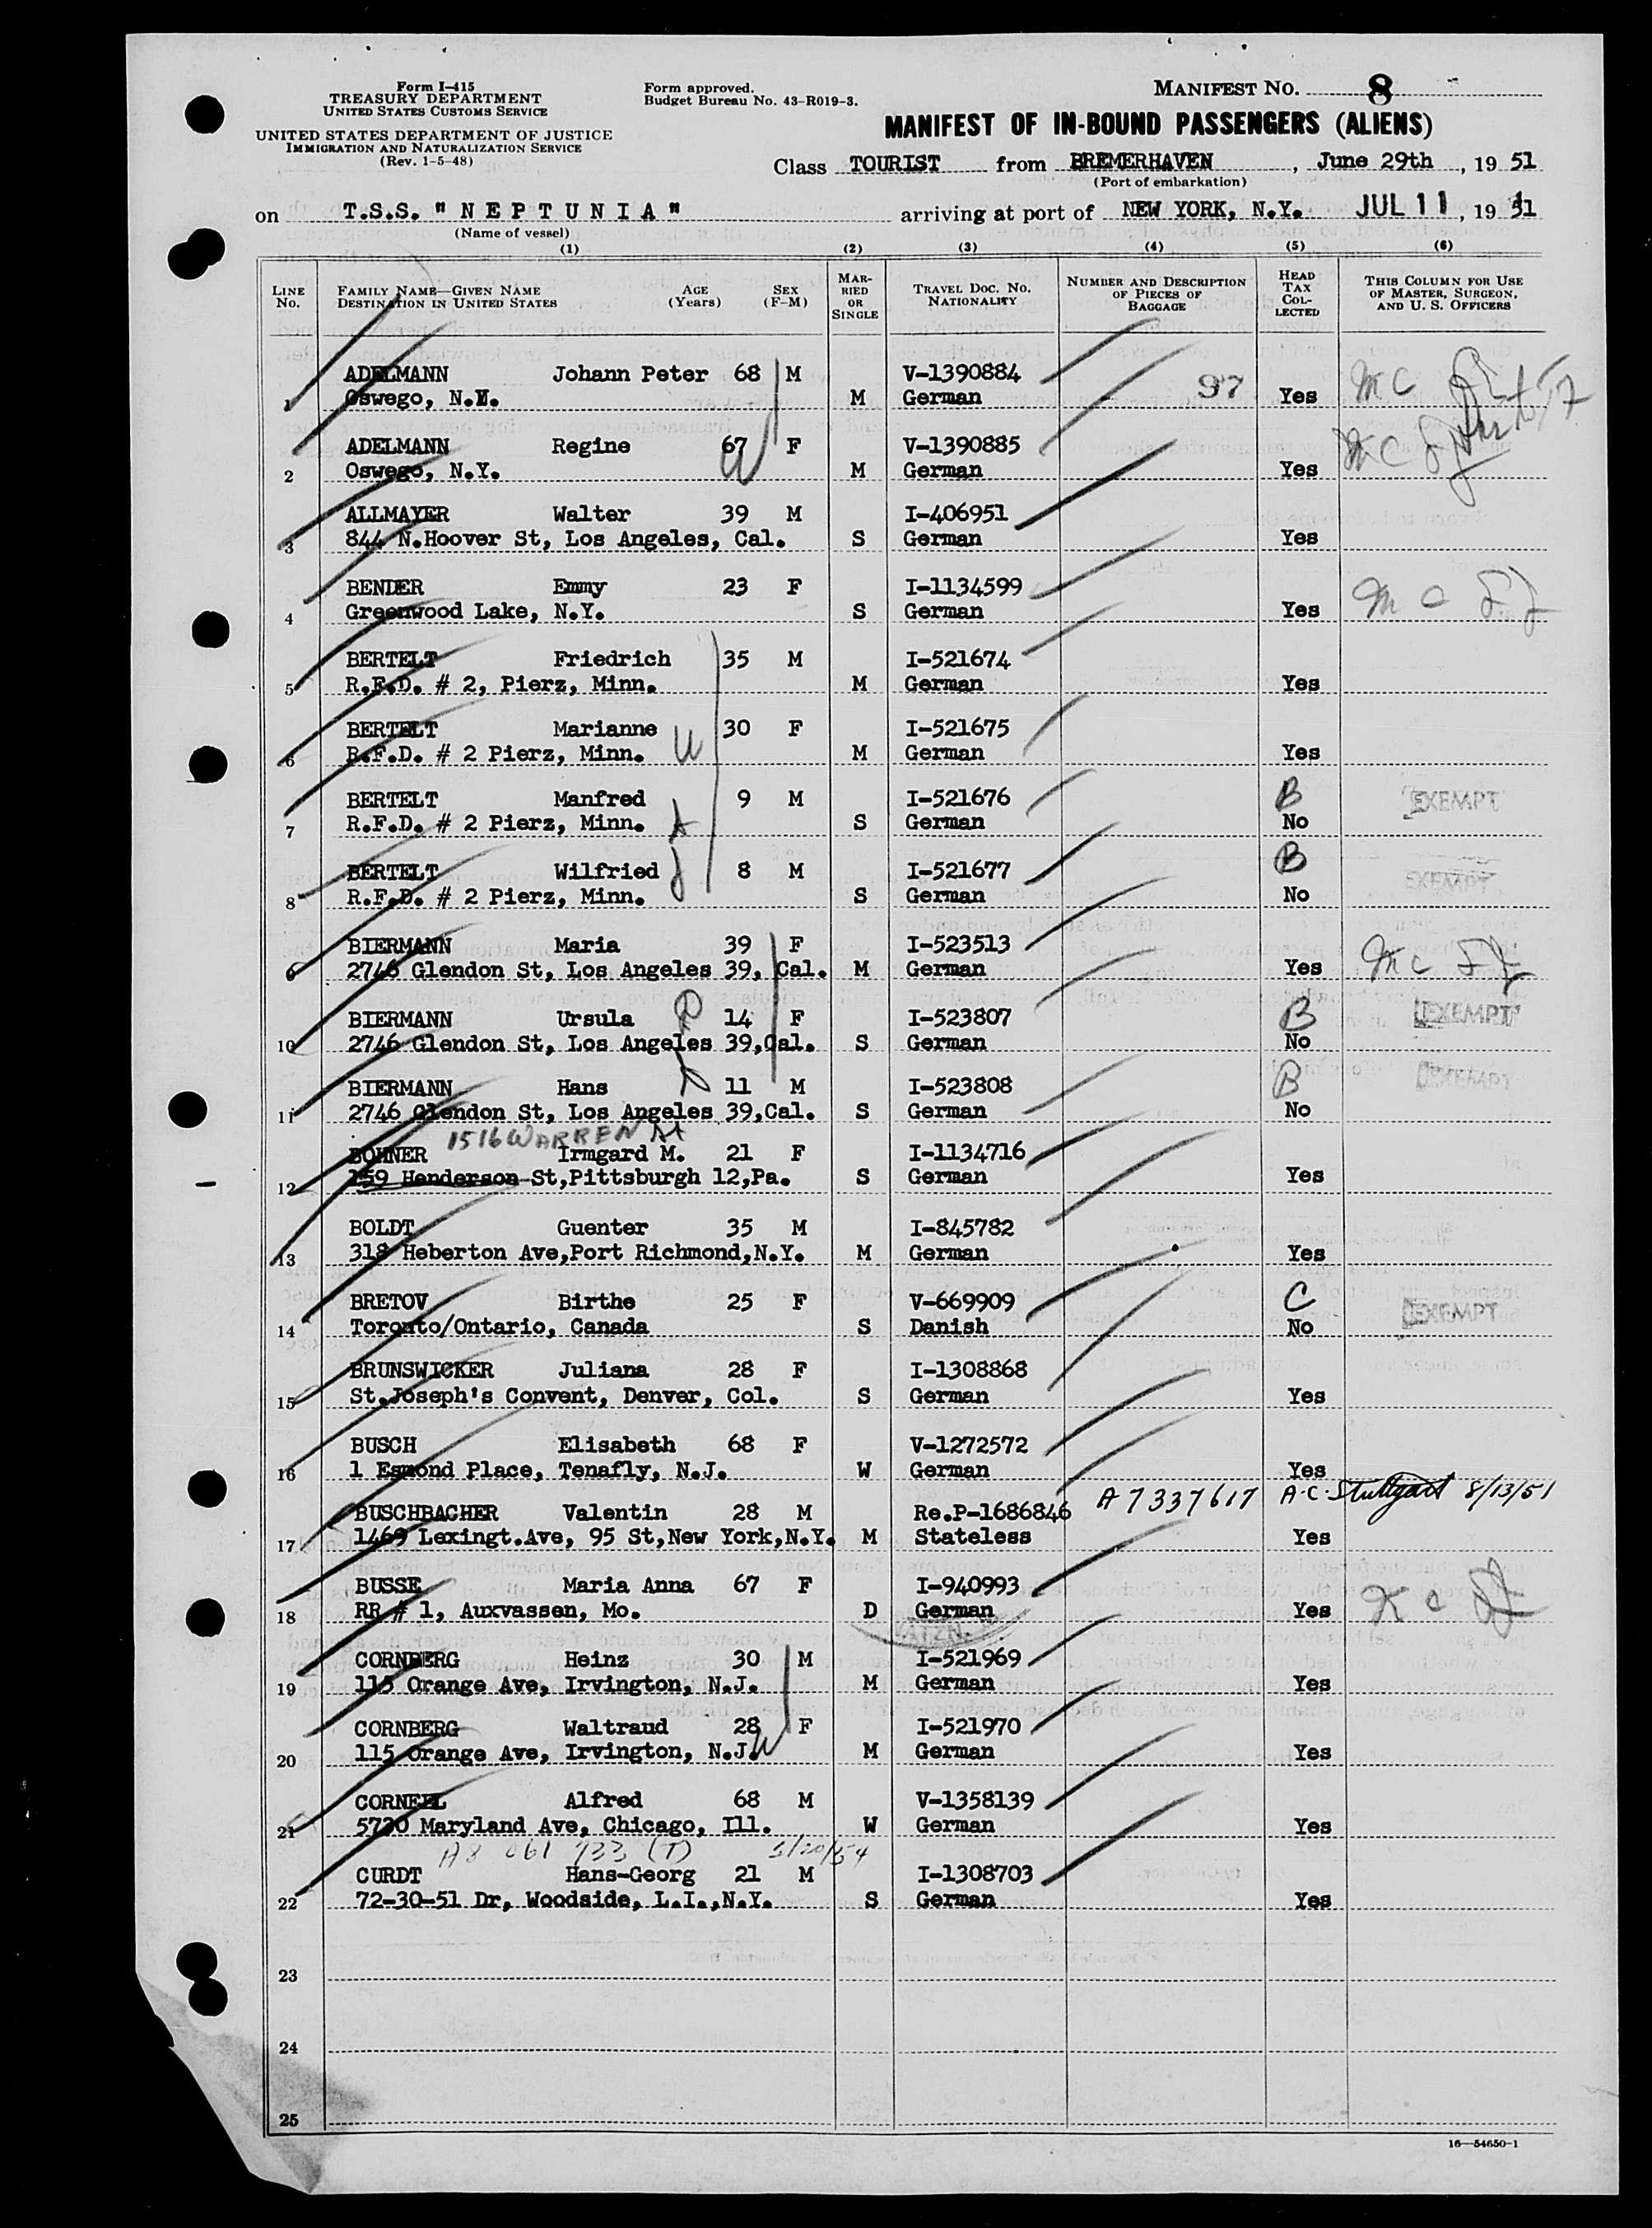 Form I-415
TREASURY DEPARTMENT
UNITED STATES CUSTOMS SERVICE
UNITED STATES DEPARTMENT OF JUSTICE
IMMIGRATION AND NATURALIZATION SERVICE
(Rev. 1-5-48)
Form approved.
Budget Bureau No. 43-R019-3.
MANIFEST NO. 8
MANIFEST OF IN-BOUND PASSENGERS (ALIENS)
Class TOURIST from BREMERHAVEN, June 29th, 19 51
(Port of embarkation)
on T.S.S. " N E P T U N I A " arriving at port of NEW YORK, N.Y. JUL 11, 19 51
(Name of vessel)
(1) (2) (3) (4) (5) (6)
LINE No. FAMILY NAME—GIVEN NAME DESTINATION IN UNITED STATES AGE (Years) SEX (F-M) MARRIED OR SINGLE TRAVEL DOC. NO. NATIONALITY NUMBER AND DESCRIPTION OF PIECES OF BAGGAGE HEAD TAX COLLECTED THIS COLUMN FOR USE OF MASTER, SURGEON, AND U. S. OFFICERS
ADELMANN Johann Peter 68 M V-1390884 97 M C
1 Oswego, N.Y. M German Yes
ADELMANN Regine 67 F V-1390885 M C
2 Oswego, N.Y. M German Yes
ALLMAYER Walter 39 M I-406951
3 844 N.Hoover St, Los Angeles, Cal. S German Yes
BENDER Emmy 23 F I-1134599 M C
4 Greenwood Lake, N.Y. S German Yes
BERTELT Friedrich 35 M I-521674
5 R.F.D. # 2, Pierz, Minn. M German Yes
BERTELT Marianne 30 F I-521675
6 R.F.D. # 2 Pierz, Minn. M German Yes
BERTELT Manfred 9 M I-521676 B EXEMPT
7 R.F.D. # 2 Pierz, Minn. S German No
BERTELT Wilfried 8 M I-521677 B EXEMPT
8 R.F.D. # 2 Pierz, Minn. S German No
BIERMANN Maria 39 F I-523513 M C
9 2746 Glendon St, Los Angeles 39, Cal. M German Yes
BIERMANN Ursula 14 F I-523807 B EXEMPT
10 2746 Glendon St, Los Angeles 39,Cal. S German No
BIERMANN Hans 11 M I-523808 B EXEMPT
11 2746 Glendon St, Los Angeles 39,Cal. S German No
1516 WARREN St
BOHNER Irmgard M. 21 F I-1134716
12 159 Henderson St,Pittsburgh 12,Pa. S German Yes
BOLDT Guenter 35 M I-845782
13 318 Heberton Ave,Port Richmond,N.Y. M German Yes
BRETOV Birthe 25 F V-669909 C EXEMPT
14 Toronto/Ontario, Canada S Danish No
BRUNSWICKER Juliana 28 F I-1308868
15 St.Joseph's Convent, Denver, Col. S German Yes
BUSCH Elisabeth 68 F V-1272572
16 1 Esmond Place, Tenafly, N.J. W German Yes
BUSCHBACHER Valentin 28 M Re.P-1686846 A 7337617 A.C. Stuttgart 8/13/51
17 1469 Lexingt.Ave, 95 St,New York,N.Y. M Stateless Yes
BUSSE Maria Anna 67 F I-940993
18 RR # 1, Auxvassen, Mo. D German Yes
CORNBERG Heinz 30 M I-521969
19 115 Orange Ave, Irvington, N.J. M German Yes
CORNBERG Waltraud 28 F I-521970
20 115 Orange Ave, Irvington, N.J. M German Yes
CORNEIL Alfred 68 M V-1358139
21 5720 Maryland Ave, Chicago, Ill. W German Yes
A8 061 733 (T)
CURDT Hans-Georg 21 M I-1308703
22 72-30-51 Dr, Woodside, L.I.,N.Y. S German Yes
23
24
25
16—54650-1